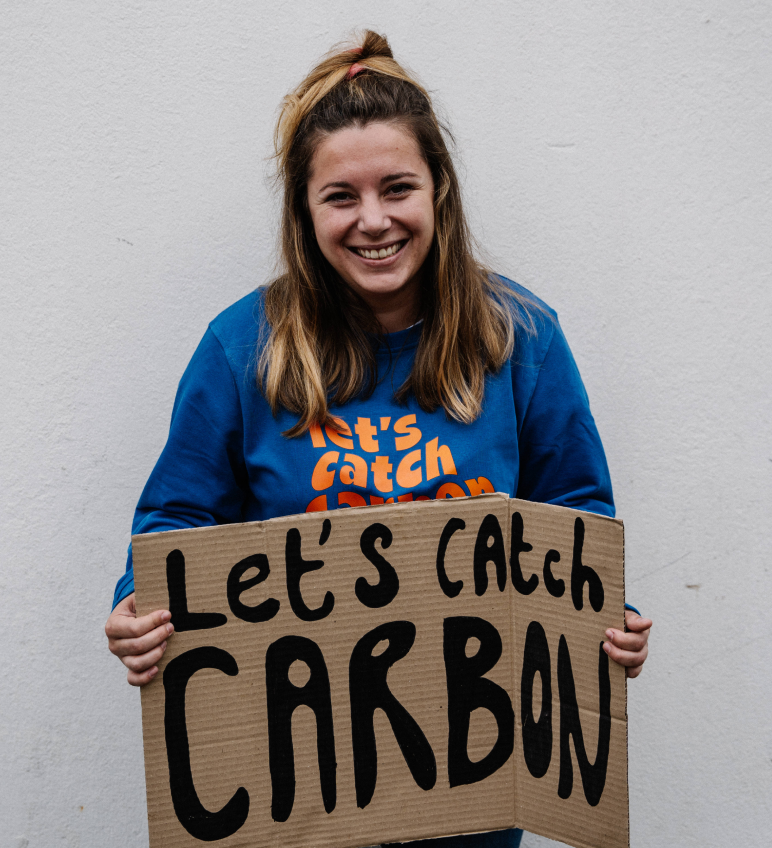 let's
catch
carbon
Let's catch
CARBON